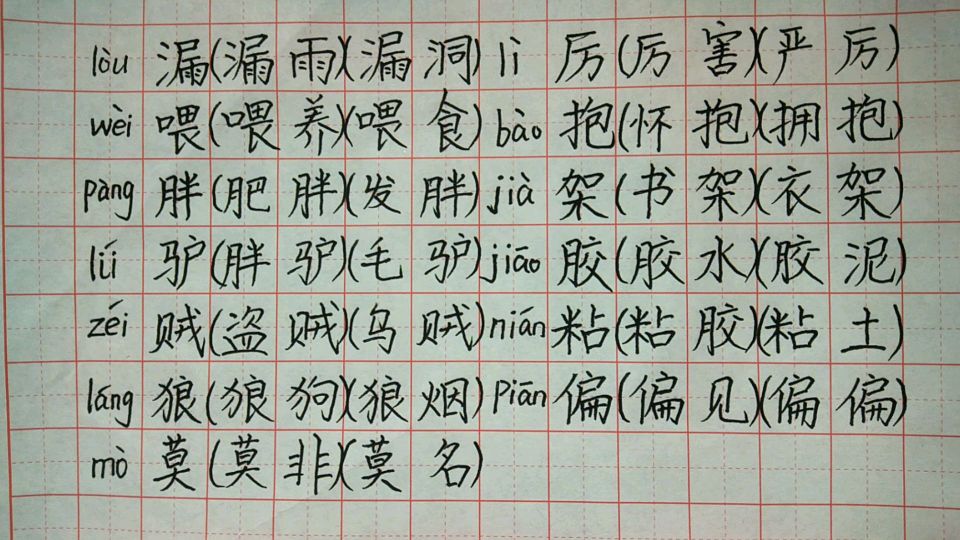 lòu 漏(漏雨)(漏洞) lì 厉(厉害)(严厉)
wèi 喂(喂养)(喂食) bào 抱(怀抱)(拥抱)
pàng 胖(肥胖)(发胖) jià 架(书架)(衣架)
lǘ 驴(胖驴)(毛驴) jiāo 胶(胶水)(胶泥)
zéi 贼(盗贼)(乌贼) nián 粘(粘胶)(粘土)
láng 狼(狼狗)(狼烟) Piān 偏(偏见)(偏偏)
mò 莫(莫非)(莫名)